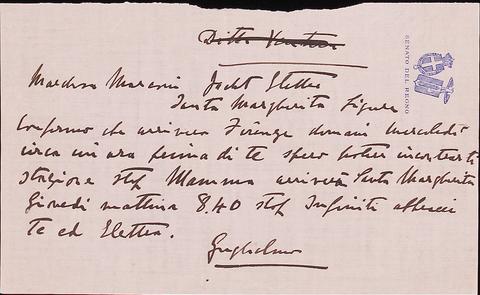 Ditta
SENATO DEL REGNO
Marchesa Marconi Yacht Elettra
Santa Margherita Ligure
Confermo che arriverò Firenze domani mercoledì
circa un'ora prima di te spero poter incontrarti
stazione stop Mamma arriverà Santa Margherita
Giovedì mattina 8.40 stop Infiniti abbracci
Te ed Elettra.
Guglielmo